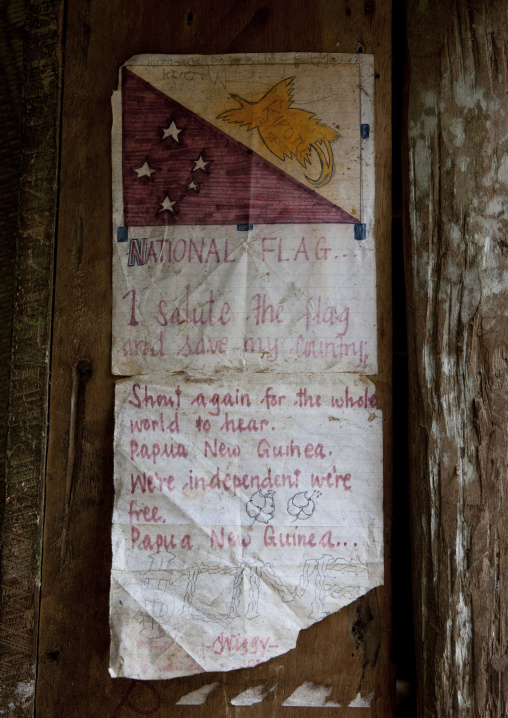 NATIONAL FLAG...
I salute the flag
and save my country;
Shout again for the whole
world to hear.
Papua New Guinea.
We're independent we're
free.
Papua New Guinea...